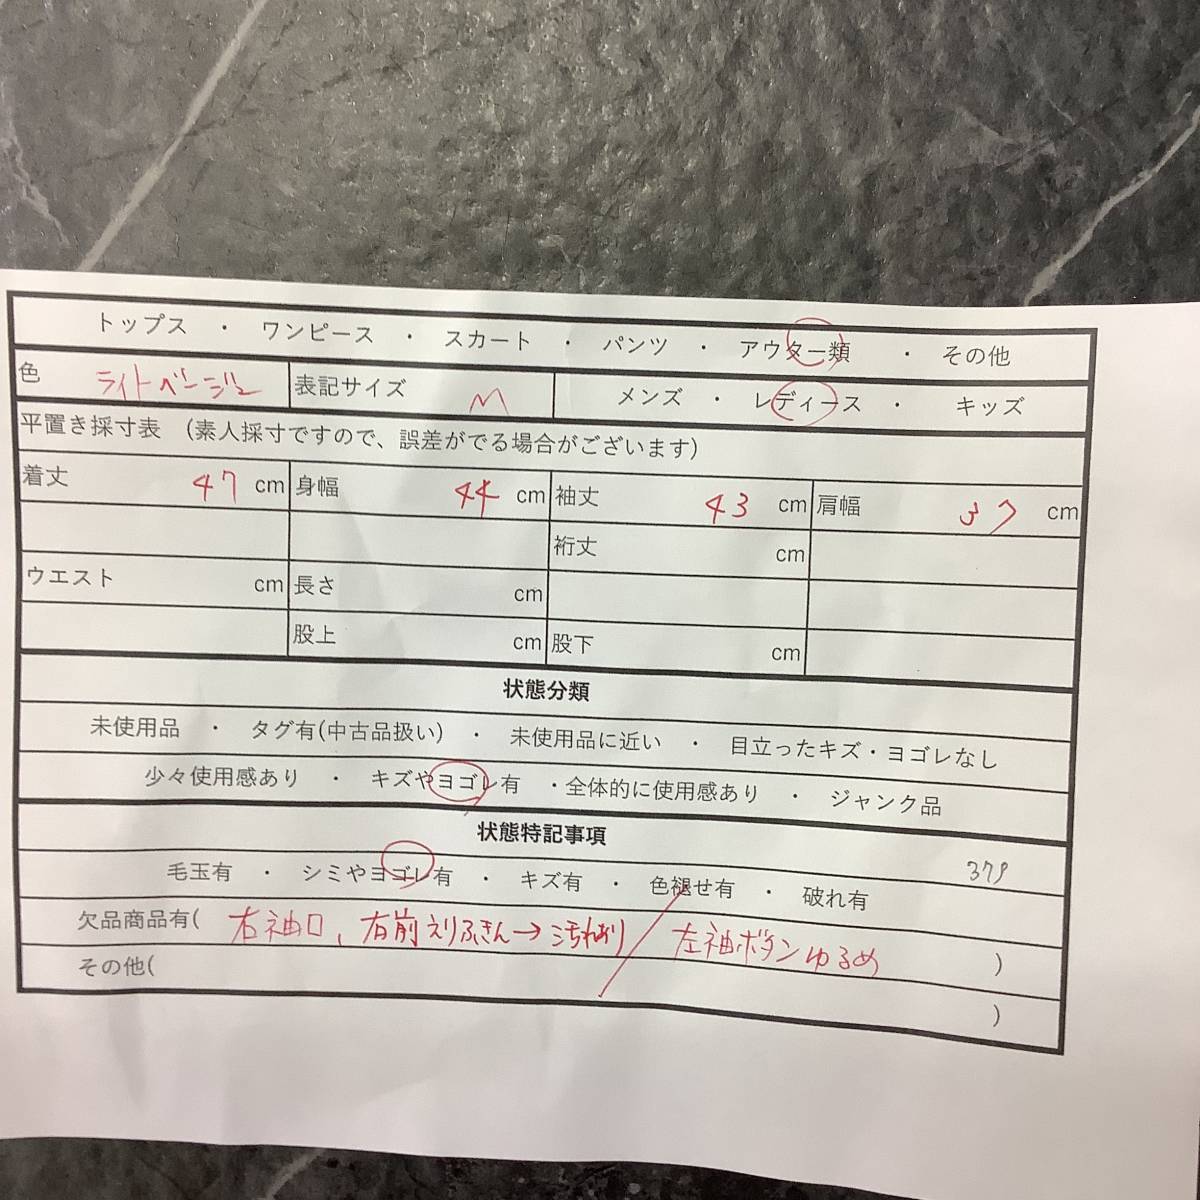 トップス ・ ワンピース ・ スカート ・ パンツ ・ アウター類 ・ その他
色 ライトベージュ 表記サイズ M メンズ ・ レディース ・ キッズ
平置き採寸表 (素人採寸ですので、誤差がでる場合がございます)
着丈 47 cm 身幅 44 cm 袖丈 43 cm 肩幅 37 cm
裄丈 cm
ウエスト cm 長さ cm
股上 cm 股下 cm
状態分類
未使用品 ・ タグ有(中古品扱い) ・ 未使用品に近い ・ 目立ったキズ・ヨゴレなし
少々使用感あり ・ キズやヨゴレ有 ・全体的に使用感あり ・ ジャンク品
状態特記事項
379
毛玉有 ・ シミやヨゴレ有 ・ キズ有 ・ 色褪せ有 ・ 破れ有
欠品商品有( 右袖口、右前えりふきん→汚れあり / 左袖ボタンゆるめ )
その他( )